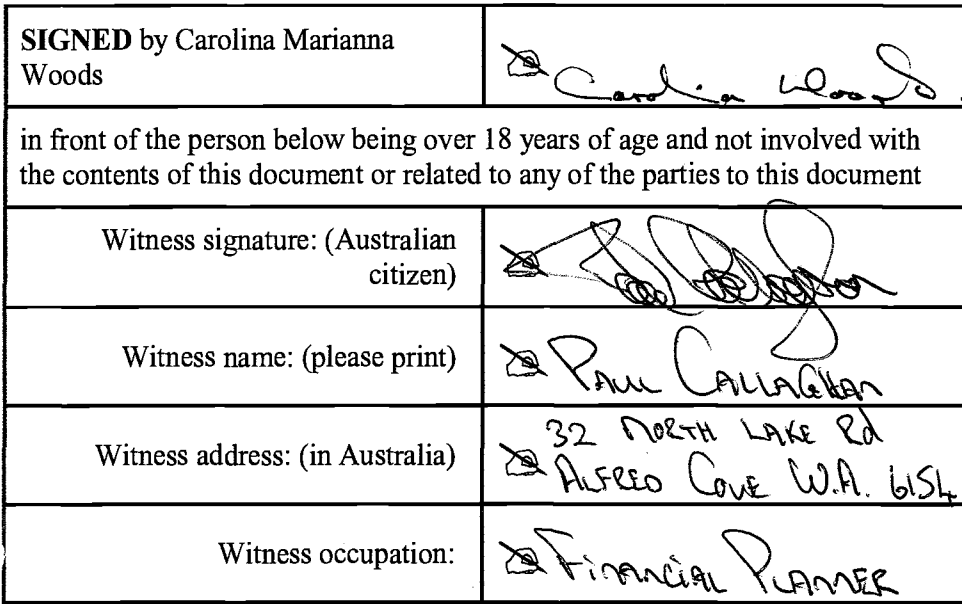 SIGNED by Carolina Marianna
Woods
Carolina Woods
in front of the person below being over 18 years of age and not involved with
the contents of this document or related to any of the parties to this document
Witness signature: (Australian
citizen)
Witness name: (please print)
PAUL CALLAGHAN
Witness address: (in Australia)
32 NORTH LAKE Rd
ALFRED COVE W.A. 6154
Witness occupation:
FINANCIAL PLANNER